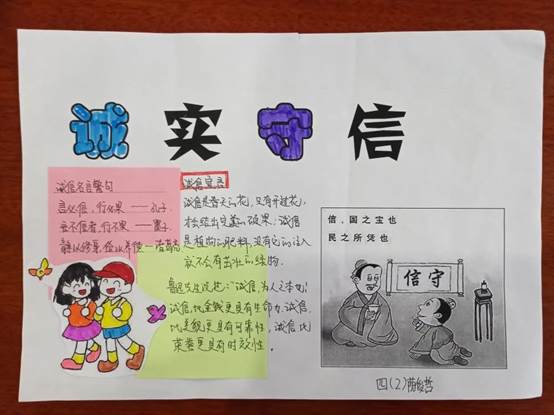 诚实守信
诚信名言警句
言必信,行必果 ——孔子
言不信者,行不果 ——墨子
静以修身,俭以养德 ——诸葛亮
诚信宣言
诚信是春天的花,只有开过花,
才会结出完美的硕果;诚信
是植物的肥料,没有它的注入
就不会有茁壮的植物。
鲁迅先生说过:“诚信为人之本也”
诚信比金钱更具有生命力,诚信
比美貌更具有可靠性,诚信比
荣誉更具有时效性。
信,国之宝也
民之所凭也
信守
四(2)